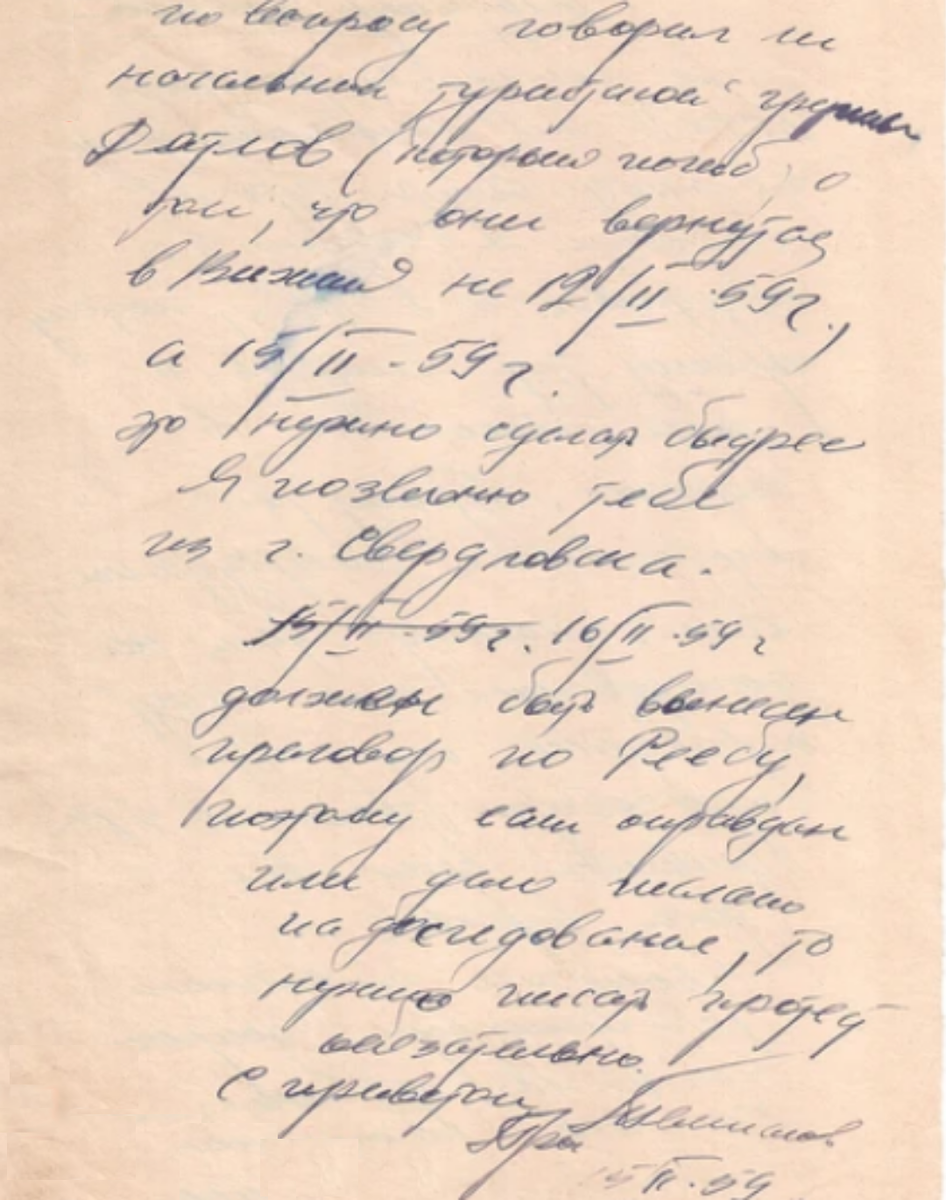 по вопросу говорил ли
начальник туристской группы
Дятлов (который погиб) о
том, что они вернутся
в Вижай не 12/II.59 г.,
а 15/II-59 г.
это нужно сделать быстрее
Я позвоню тебе
из г. Свердловска.
15/II.59 г. 16/II.59 г
должен быть вынесен
приговор по Реебу,
поэтому если оправдан
или дело послано
на доследование, то
нужно писать протест
обязательно.
С приветом
15 II.59